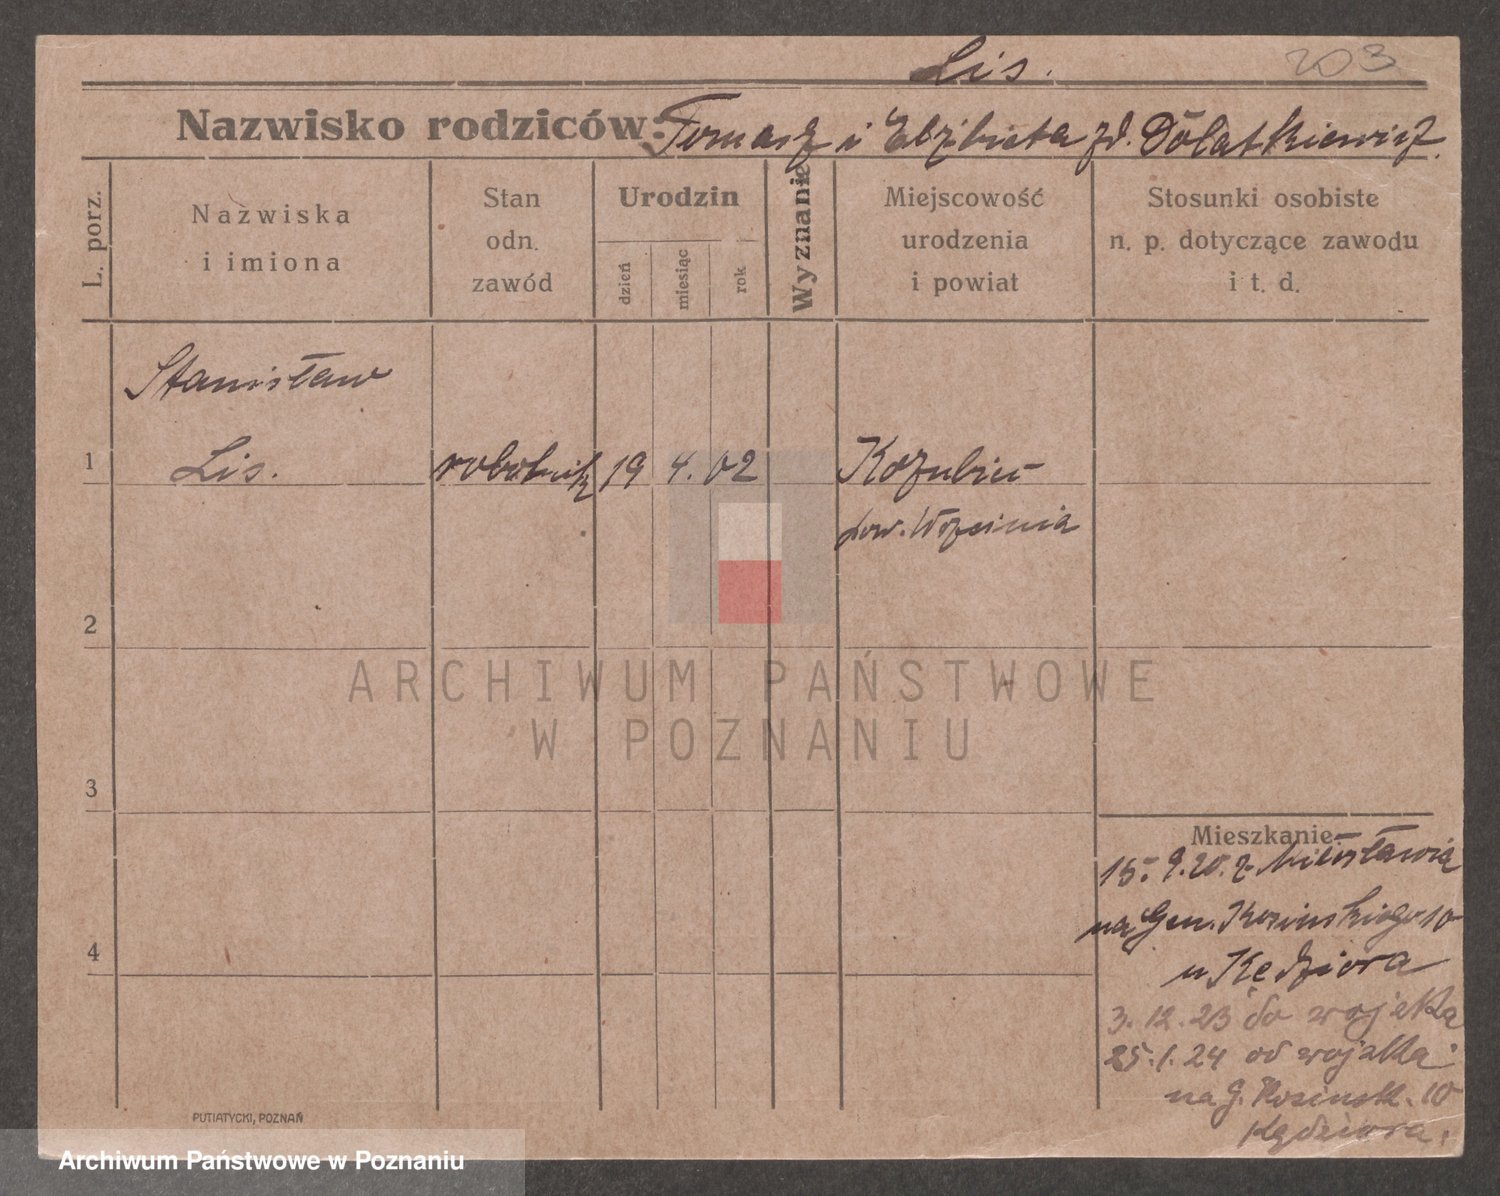 Lis. 203
Nazwisko rodziców: Tomasz i Elżbieta zd. Dolatkiewicz.
L. porz.
Nazwiska
i imiona
Stan
odn.
zawód
Urodzin
dzień
miesiąc
rok
Wyznanie
Miejscowość
urodzenia
i powiat
Stosunki osobiste
n. p. dotyczące zawodu
i t. d.
Stanisław
1 Lis. robotnik 19 4. 02
pow.
2
3
4
ARCHIWUM PAŃSTWOWE
W POZNANIU
Mieszkanie.
15. 9. 20. z
na Gen. Kosinskiego 10
u Kędziora
3. 12. 23 do wojska
25. 1. 24 od wojska
na G. Kosinsk. 10
Kędziora.
PUTIATYCKI, POZNAŃ
Archiwum Państwowe w Poznaniu